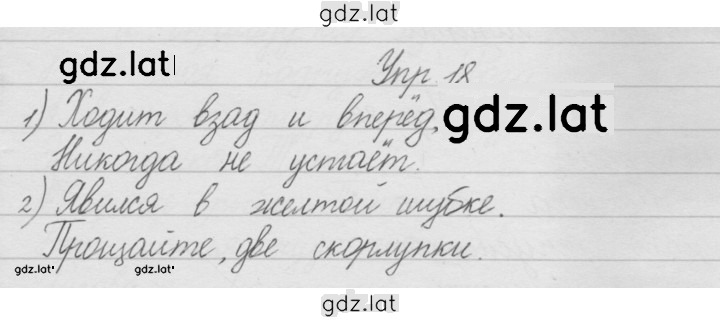 gdz.lat
gdz.lat
Упр. 18
1) Ходит взад и вперёд,
gdz.lat
Никогда не устаёт.
2) Явился в желтой шубке.
Прощайте, две скорлупки.
gdz.lat gdz.lat
gdz.lat